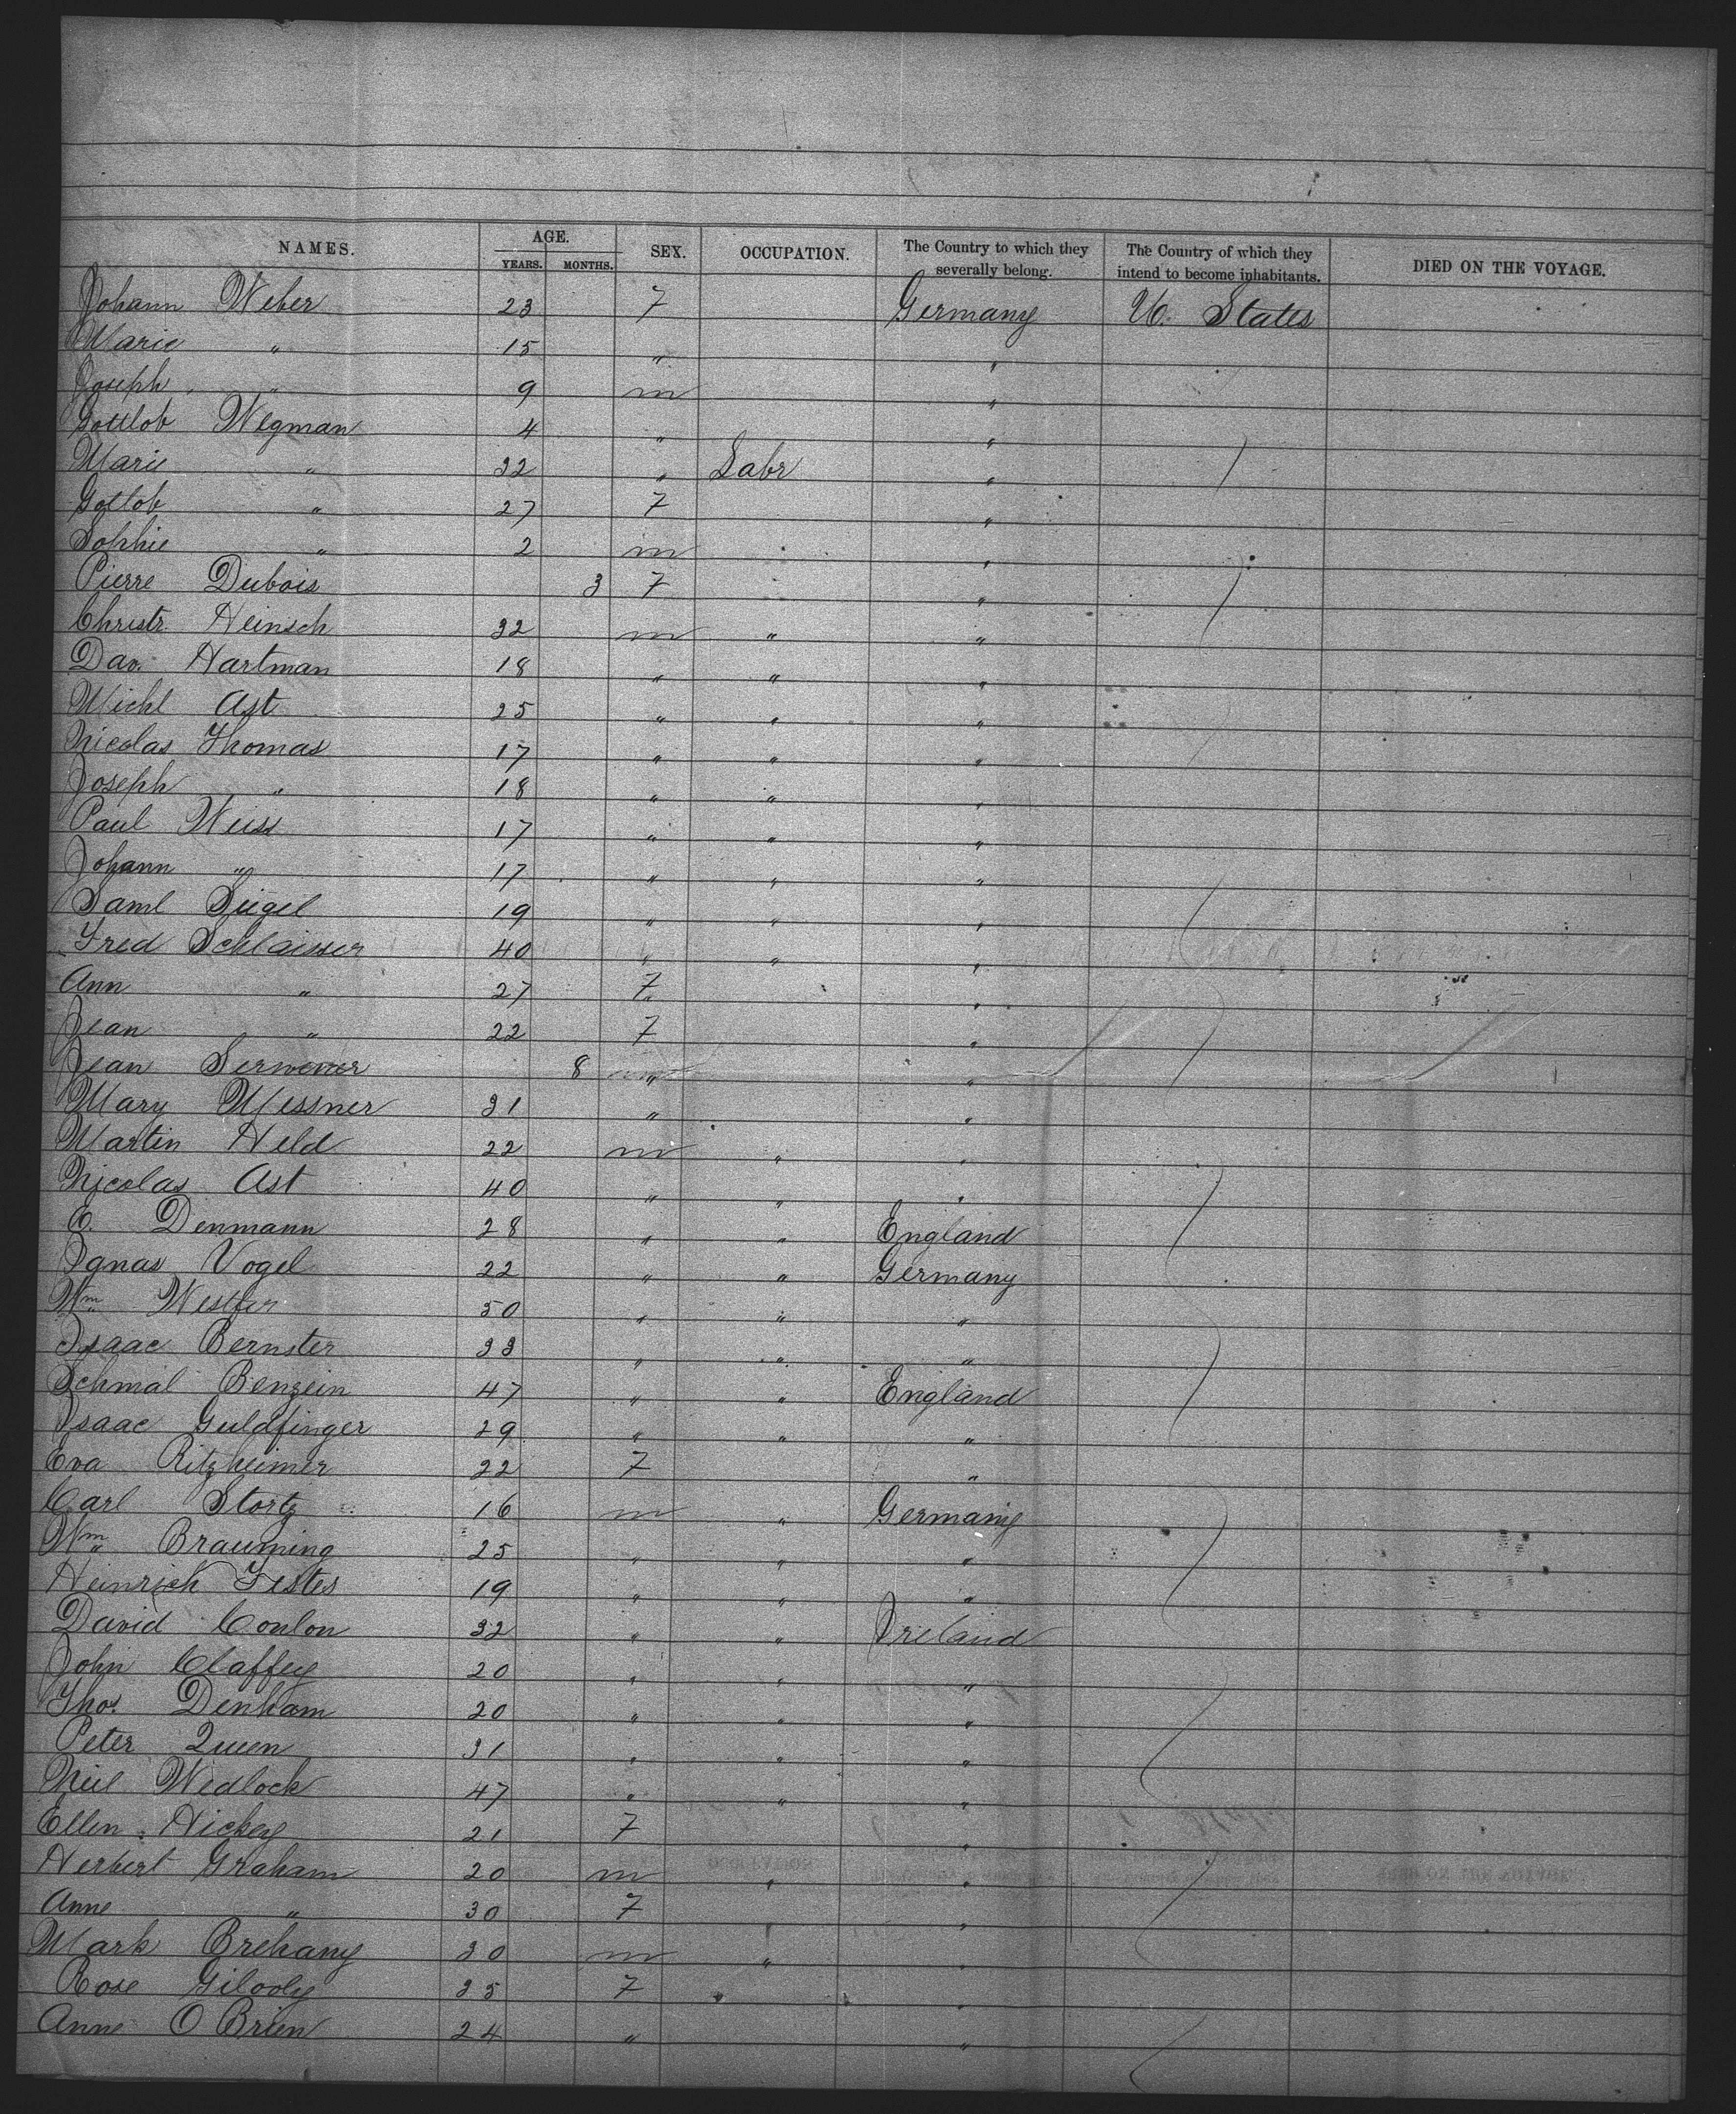 NAMES. AGE. SEX. OCCUPATION. The Country to which they severally belong. The Country of which they intend to become inhabitants. DIED ON THE VOYAGE.
YEARS. MONTHS.
Johann Weber 23 7 Germany U. States
Marie " 15 " "
Joseph " 9 m "
Gottlob Wegman 4 " "
Marie " 32 " Labr "
Gotlob " 27 7 "
Sophie " 2 m "
Pierre Dubois 3 7 "
Christr. Heinsch 32 m " "
Dav. Hartman 18 " " "
Michl Ast 25 " " "
Nicolas Thomas 17 " " "
Joseph " 18 " " "
Paul Weiss 17 " " "
Johann " 17 " " "
Saml Siegel 19 " " "
Fred Schlaisser 40 " " "
Ann " 27 7 "
Jean " 22 7 "
Jean 8 " "
Mary Messner 31 " "
Martin Held 22 m " "
Nicolas Ast 40 " " "
E. Denmann 28 " " England
Ignas Vogel 22 " " Germany
Wm 50 " " "
Isaac Bernster 33 " " "
Schmal Benzein 47 " " England
Isaac Guldfinger 29 " " "
Eva Ritzheimer 22 7 "
Carl Stortz 16 m " Germany
Wm Brauming 25 " " "
Heinrich Testes 19 " " "
David Conlon 32 " " Ireland
John Claffey 20 " " "
Thos. Denham 20 " " "
Peter Queen 31 " " "
Neil Wedlock 47 " " "
Ellen Hickey 21 7 "
Herbert Graham 20 m " "
Anne " 30 7 "
Mark Brehany 30 m " "
Rose Gilooly 25 7 "
Anne O Brien 24 " "